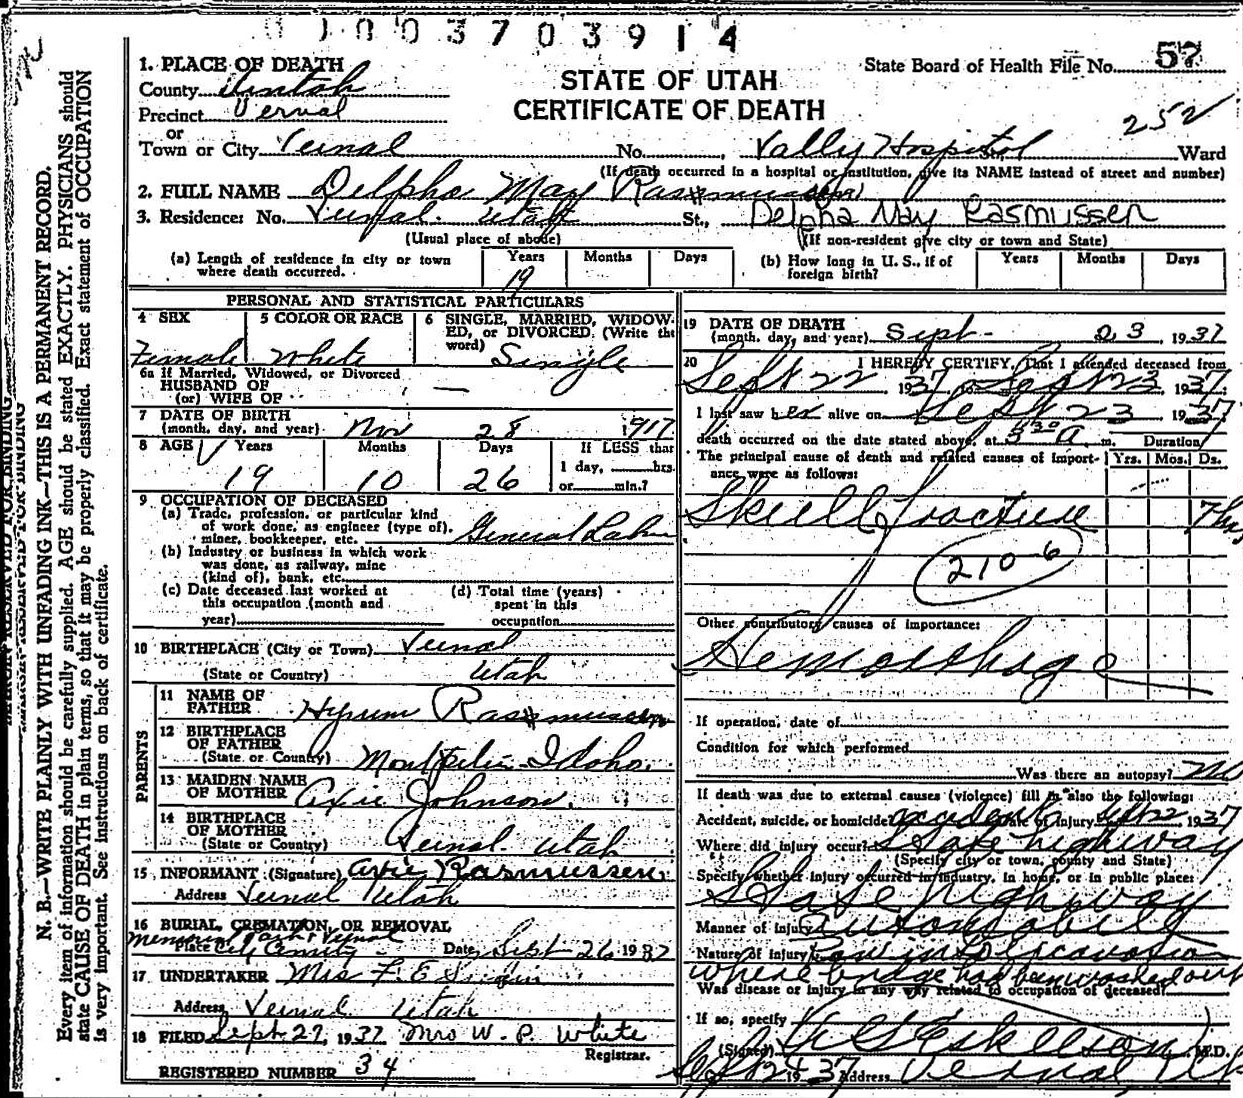 003703914
State Board of Health File No. 57
STATE OF UTAH
CERTIFICATE OF DEATH
252
1. PLACE OF DEATH
County Uintah
Precinct Vernal
or
Town or City Vernal No. , Vally Hospital St., Ward
(If death occurred in a hospital or institution, give its NAME instead of street and number)
2. FULL NAME Delpha May Rasmussen
3. Residence: No. Vernal. Utah St., Delpha May Rasmussen
(Usual place of abode) (If non-resident give city or town and State)
(a) Length of residence in city or town where death occurred. Years 19 Months Days
(b) How long in U. S., if of foreign birth? Years Months Days
PERSONAL AND STATISTICAL PARTICULARS
4 SEX Female
5 COLOR OR RACE White
6 SINGLE, MARRIED, WIDOWED, or DIVORCED. (Write the word) Single
6a If Married, Widowed, or Divorced
HUSBAND OF
(or) WIFE OF —
7 DATE OF BIRTH
(month, day, and year) Nov 28 1917
8 AGE Years 19 Months 10 Days 26 If LESS than 1 day, hrs. or min.?
9 OCCUPATION OF DECEASED
(a) Trade, profession, or particular kind of work done, as engineer (type of), miner, bookkeeper, etc. General Labor
(b) Industry or business in which work was done, as railway, mine (kind of), bank, etc.
(c) Date deceased last worked at this occupation (month and year)
(d) Total time (years) spent in this occupation
10 BIRTHPLACE (City or Town) Vernal
(State or Country) Utah
PARENTS
11 NAME OF FATHER Hyrum Rasmussen
12 BIRTHPLACE OF FATHER
(State or Country) Montpelier Idaho.
13 MAIDEN NAME OF MOTHER Axie Johnson.
14 BIRTHPLACE OF MOTHER
(State or Country) Vernal. Utah
15 INFORMANT (Signature) Axie Rasmussen.
Address Vernal Utah
16 BURIAL, CREMATION, OR REMOVAL
Place Vernal Date Sept 26 1937
17 UNDERTAKER Mrs F. E
Address Vernal Utah
18 FILED Sept 27, 1937 Mrs W. P. White
Registrar.
REGISTERED NUMBER 34
19 DATE OF DEATH
(month, day, and year) Sept- 23 1937
20 I HEREBY CERTIFY, That I attended deceased from
Sept 22 1937 to Sept 23 1937
I last saw her alive on Sept 23 1937
death occurred on the date stated above, at 5 30 A m. Duration
The principal cause of death and related causes of importance were as follows: Yrs. Mos. Ds.
Skull fracture 7 hrs
210-6
Other contributory causes of importance:
Hemorrhage
If operation, date of
Condition for which performed
Was there an autopsy? No
If death was due to external causes (violence) fill in also the following:
Accident, suicide, or homicide accident Date of injury Sept 22 1937
Where did injury occur? State highway
(Specify city or town, county and State)
Specify whether injury occurred in industry, in home, or in public place:
State highway
Manner of injury Automobile
Nature of injury Ran in Excavation
where bridge had been washed out
Was disease or injury in any way related to occupation of deceased?
If so, specify
(Signed) G S Eskelson, M.D.
Sept 24 1937 Address Vernal, Ut
MARGIN RESERVED FOR BINDING
N. B.—WRITE PLAINLY WITH UNFADING INK—THIS IS A PERMANENT RECORD.
Every item of information should be carefully supplied. AGE should be stated EXACTLY. PHYSICIANS should
state CAUSE OF DEATH in plain terms, so that it may be properly classified. Exact statement of OCCUPATION
is very important. See instructions on back of certificate.